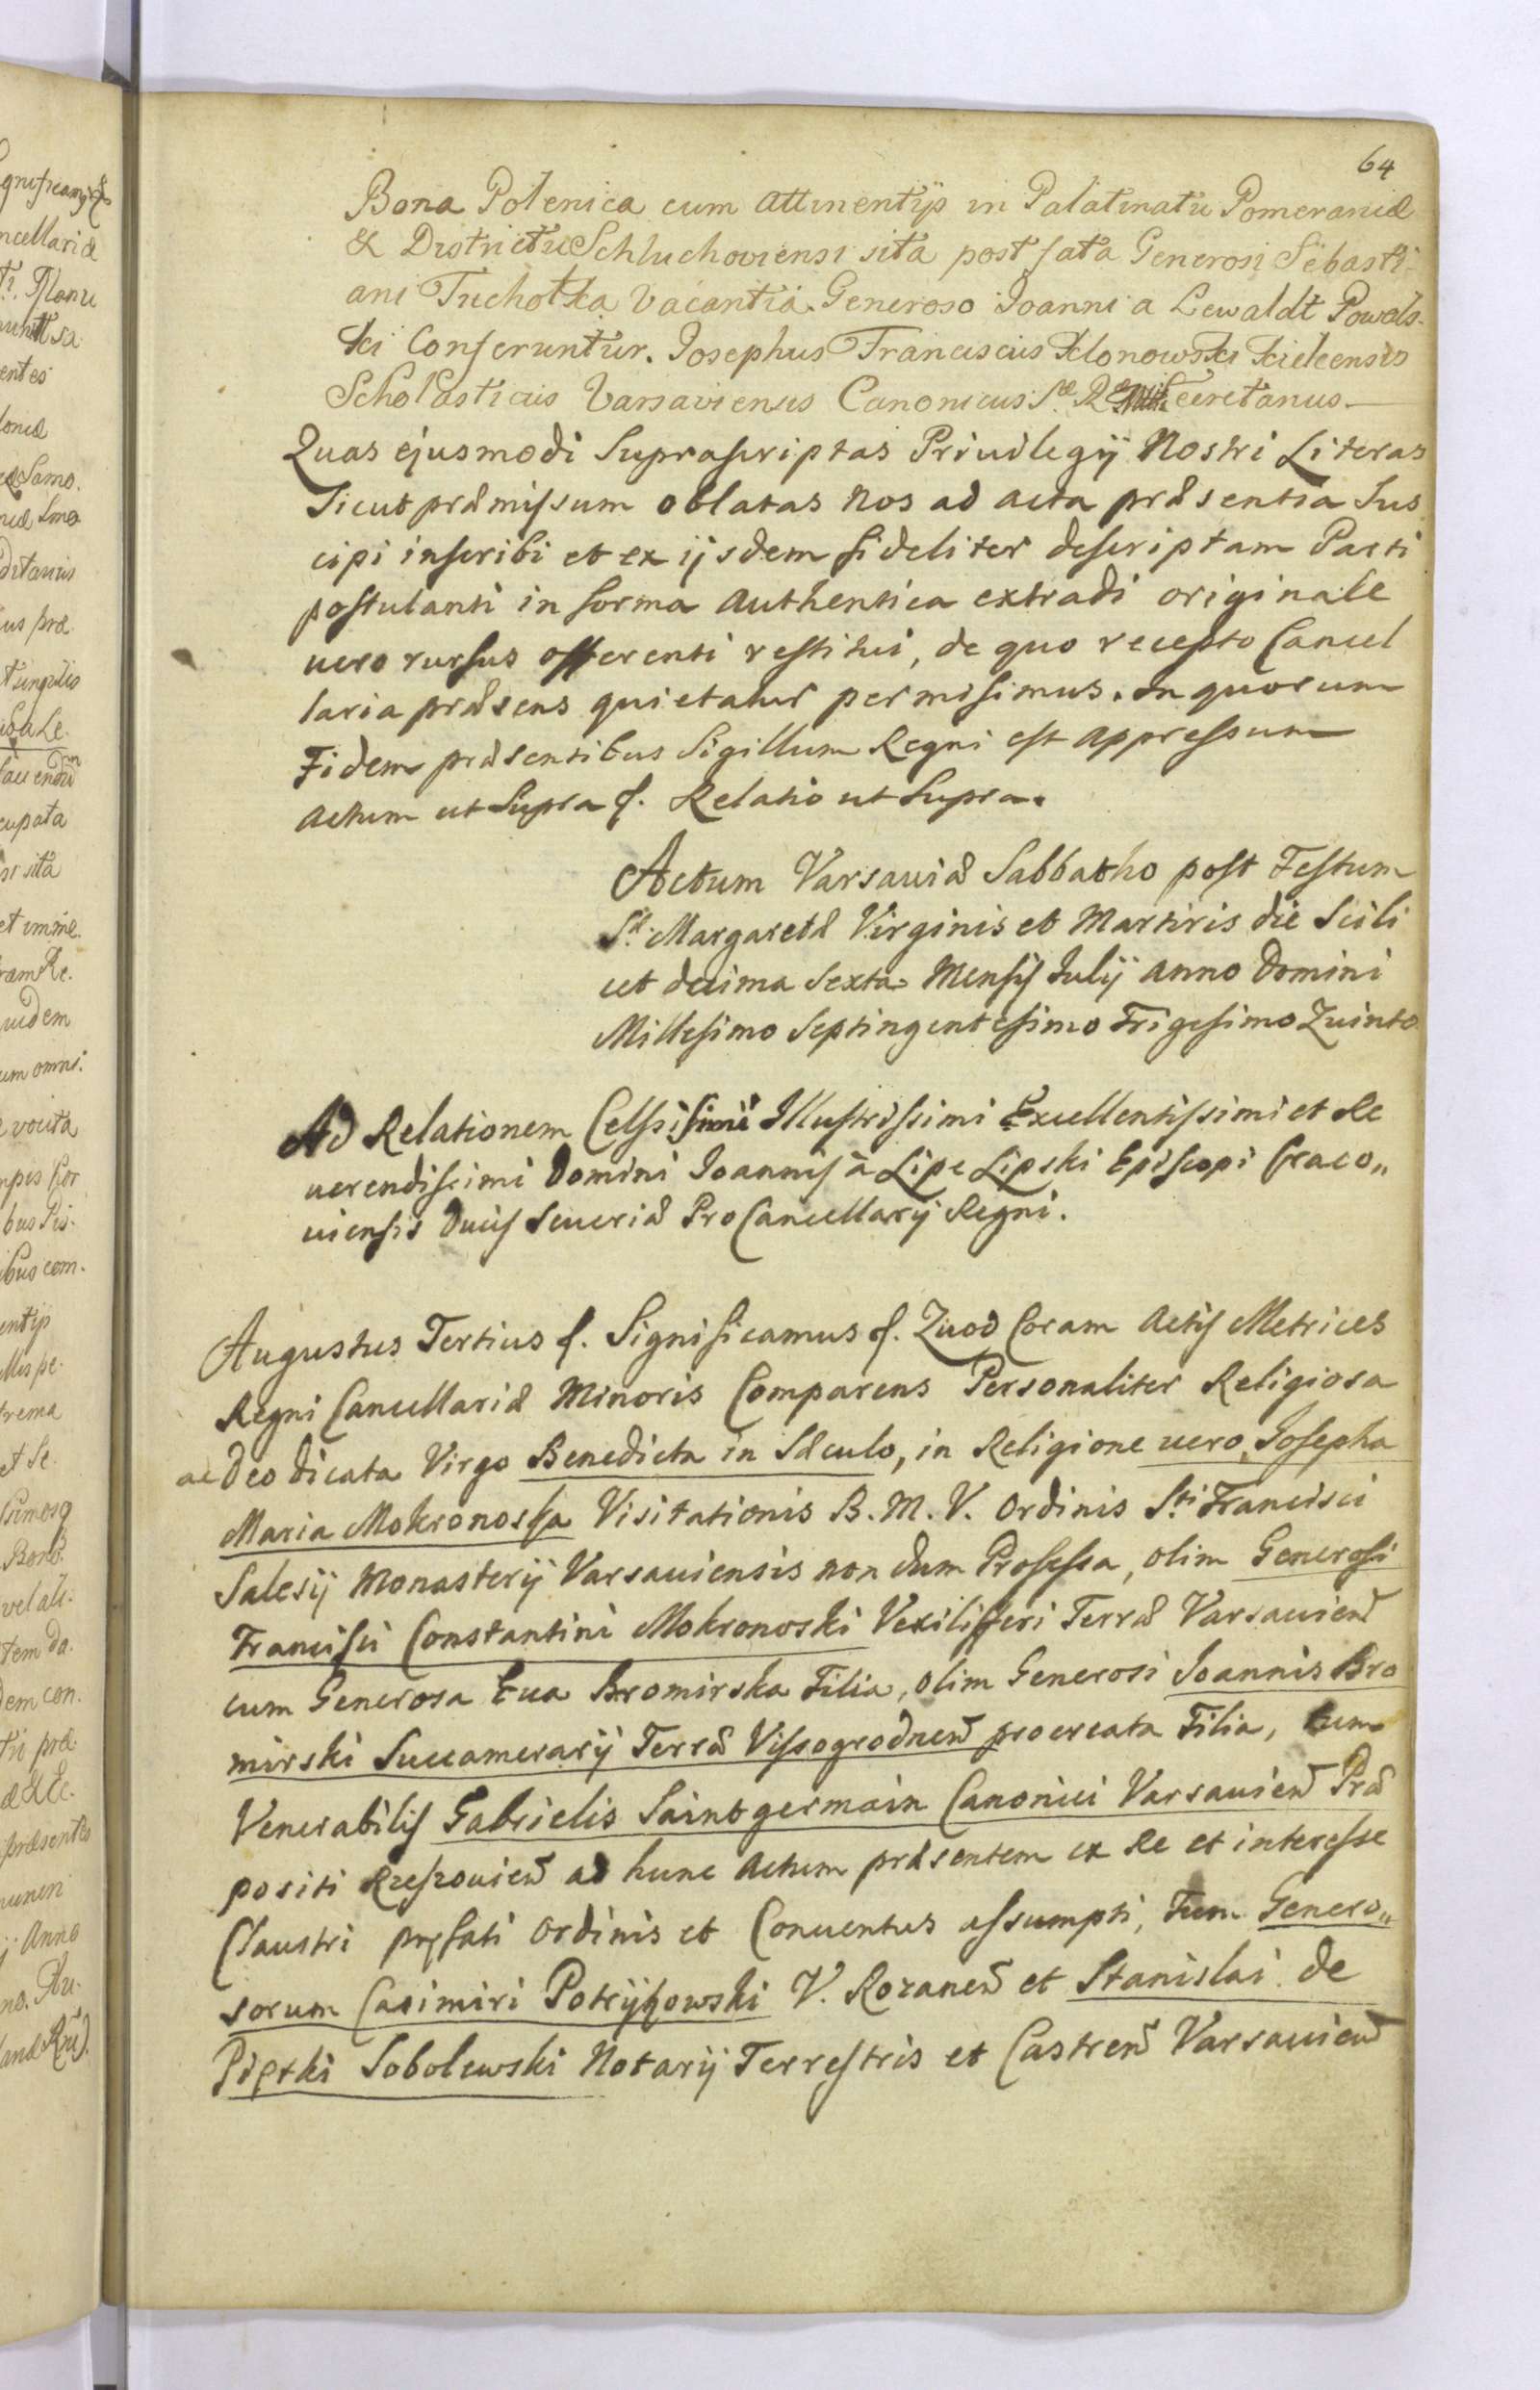 64
Bona Polenica cum attinentijs in Palatinatu Pomeraniæ
& Districtu Schluchoviensi sita post fata Generosi Sebasti-
ani Tuchotka vacantia Generoso Joanni a Lewaldt Powals-
ki Conferuntur. Josephus Franciscus Klonowski Kielcensis
Scholasticus Varsaviensis Canonicus S. R. Mtis Secretarius
Quas ejusmodi Suprascriptas Priuilegij Nostri Literas
Sicut præmissum oblatas Nos ad acta præsentia Sus
cipi inscribi et ex ijsdem fideliter descriptam Parti
postulanti in forma Authentica extradi originale
uero rursus offerenti restitui, de quo recepto Cancel
laria præsens quietatur permisimus. In quorum
Fidem præsentibus Sigillum Regni est appressum
Actum ut Supra f. Relatio ut Supra.
Actum Varsauiæ Sabbatho post Festum
Stæ Margaretæ Virginis et Martiris die Scili
cet decima sexta Mensis Julij Anno Domini
Millesimo Septingentesimo Trigesimo Quinto
Ad Relationem Celsissimi Illustrissimi Excellentissimi et Re
uerendissimi Domini Joannis à Lipe Lipski Episcopi Craco„
uiensis Ducis Seueriæ ProCancellarij Regni.
Augustus Tertius f. Significamus f. Quod Coram Actis Metrices
Regni Cancellariæ Minoris Comparens Personaliter Religiosa
ac Deo dicata Virgo Benedicta in Sæculo, in Religione uero Josepha
Maria Mokronoska Visitationis B. M. V. Ordinis Sti Francisci
Salesij Monasterij Varsauiensis non dum Professa, olim Generosi
Francisci Constantini Mokronoski Vexiliferi Terræ Varsauien̄
cum Generosa Eua Bromirska Filia, olim Generosi Joannis Bro
mirski Succamerarij Terræ Vissogrodnen̄ procreata Filia, tum
Venerabilis Gabrielis Saintgermain Canonici Varsauien̄ Præ
positi Rzeszouien̄ ad hunc Actum præsentem ex Re et interesse
Claustri præfati Ordinis et Conuentus assumpti, Tum Genero„
sorum Casimiri Potrykowski V. Rozanen̄ et Stanislai de
Piętki Sobolewski Notarij Terrestris et Castren̄ Varsauien̄